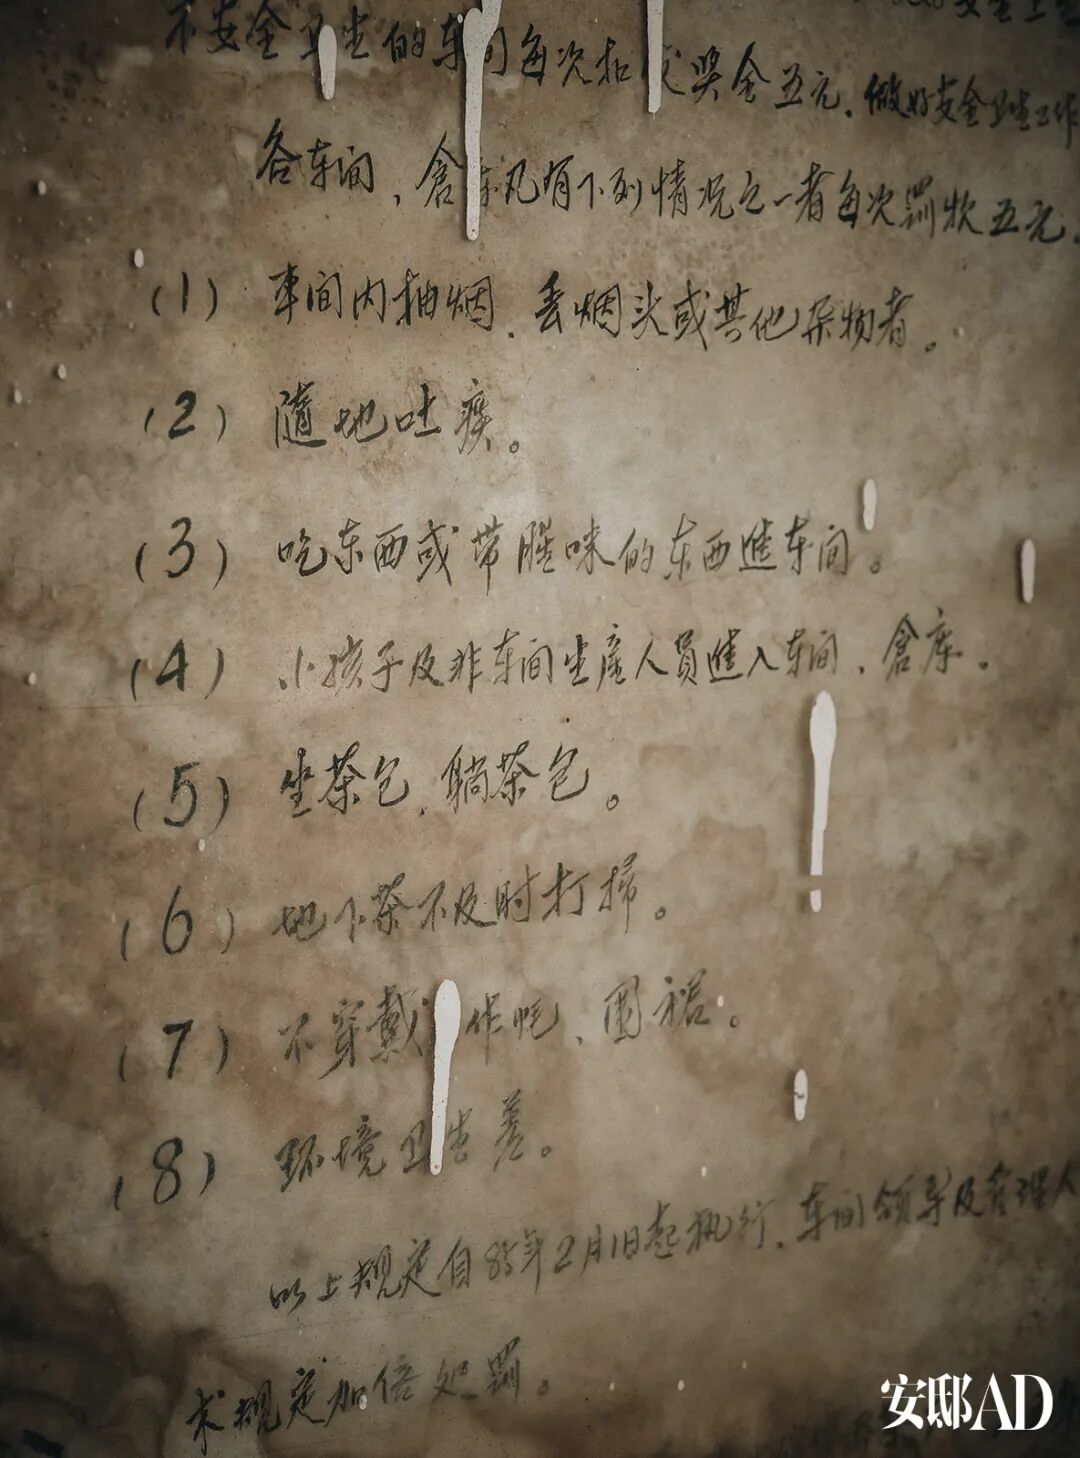 不安全卫生的车间每次扣 奖金五元.做好安全卫生工作
各车间、倉库凡有下列情况之一者每次罰款五元.
(1) 車间内抽烟.丢烟头或其他杂物者。
(2) 随地吐痰。
(3) 吃东西或带腥味的东西進车间。
(4) 小孩子及非车间生産人员進入车间、倉库.
(5) 坐茶包.躺茶包。
(6) 地下茶不及时打掃。
(7) 不穿戴 作帽、围裙。
(8) 环境卫生差。
以上规定自85年2月1日起执行.车间领导及管理人
规定加倍处罰。
安邸AD